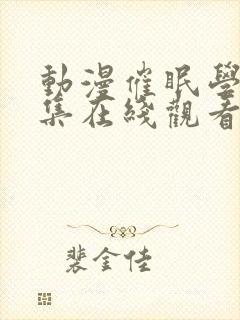 動漫催眠學
集在綫觀看
裴金佳